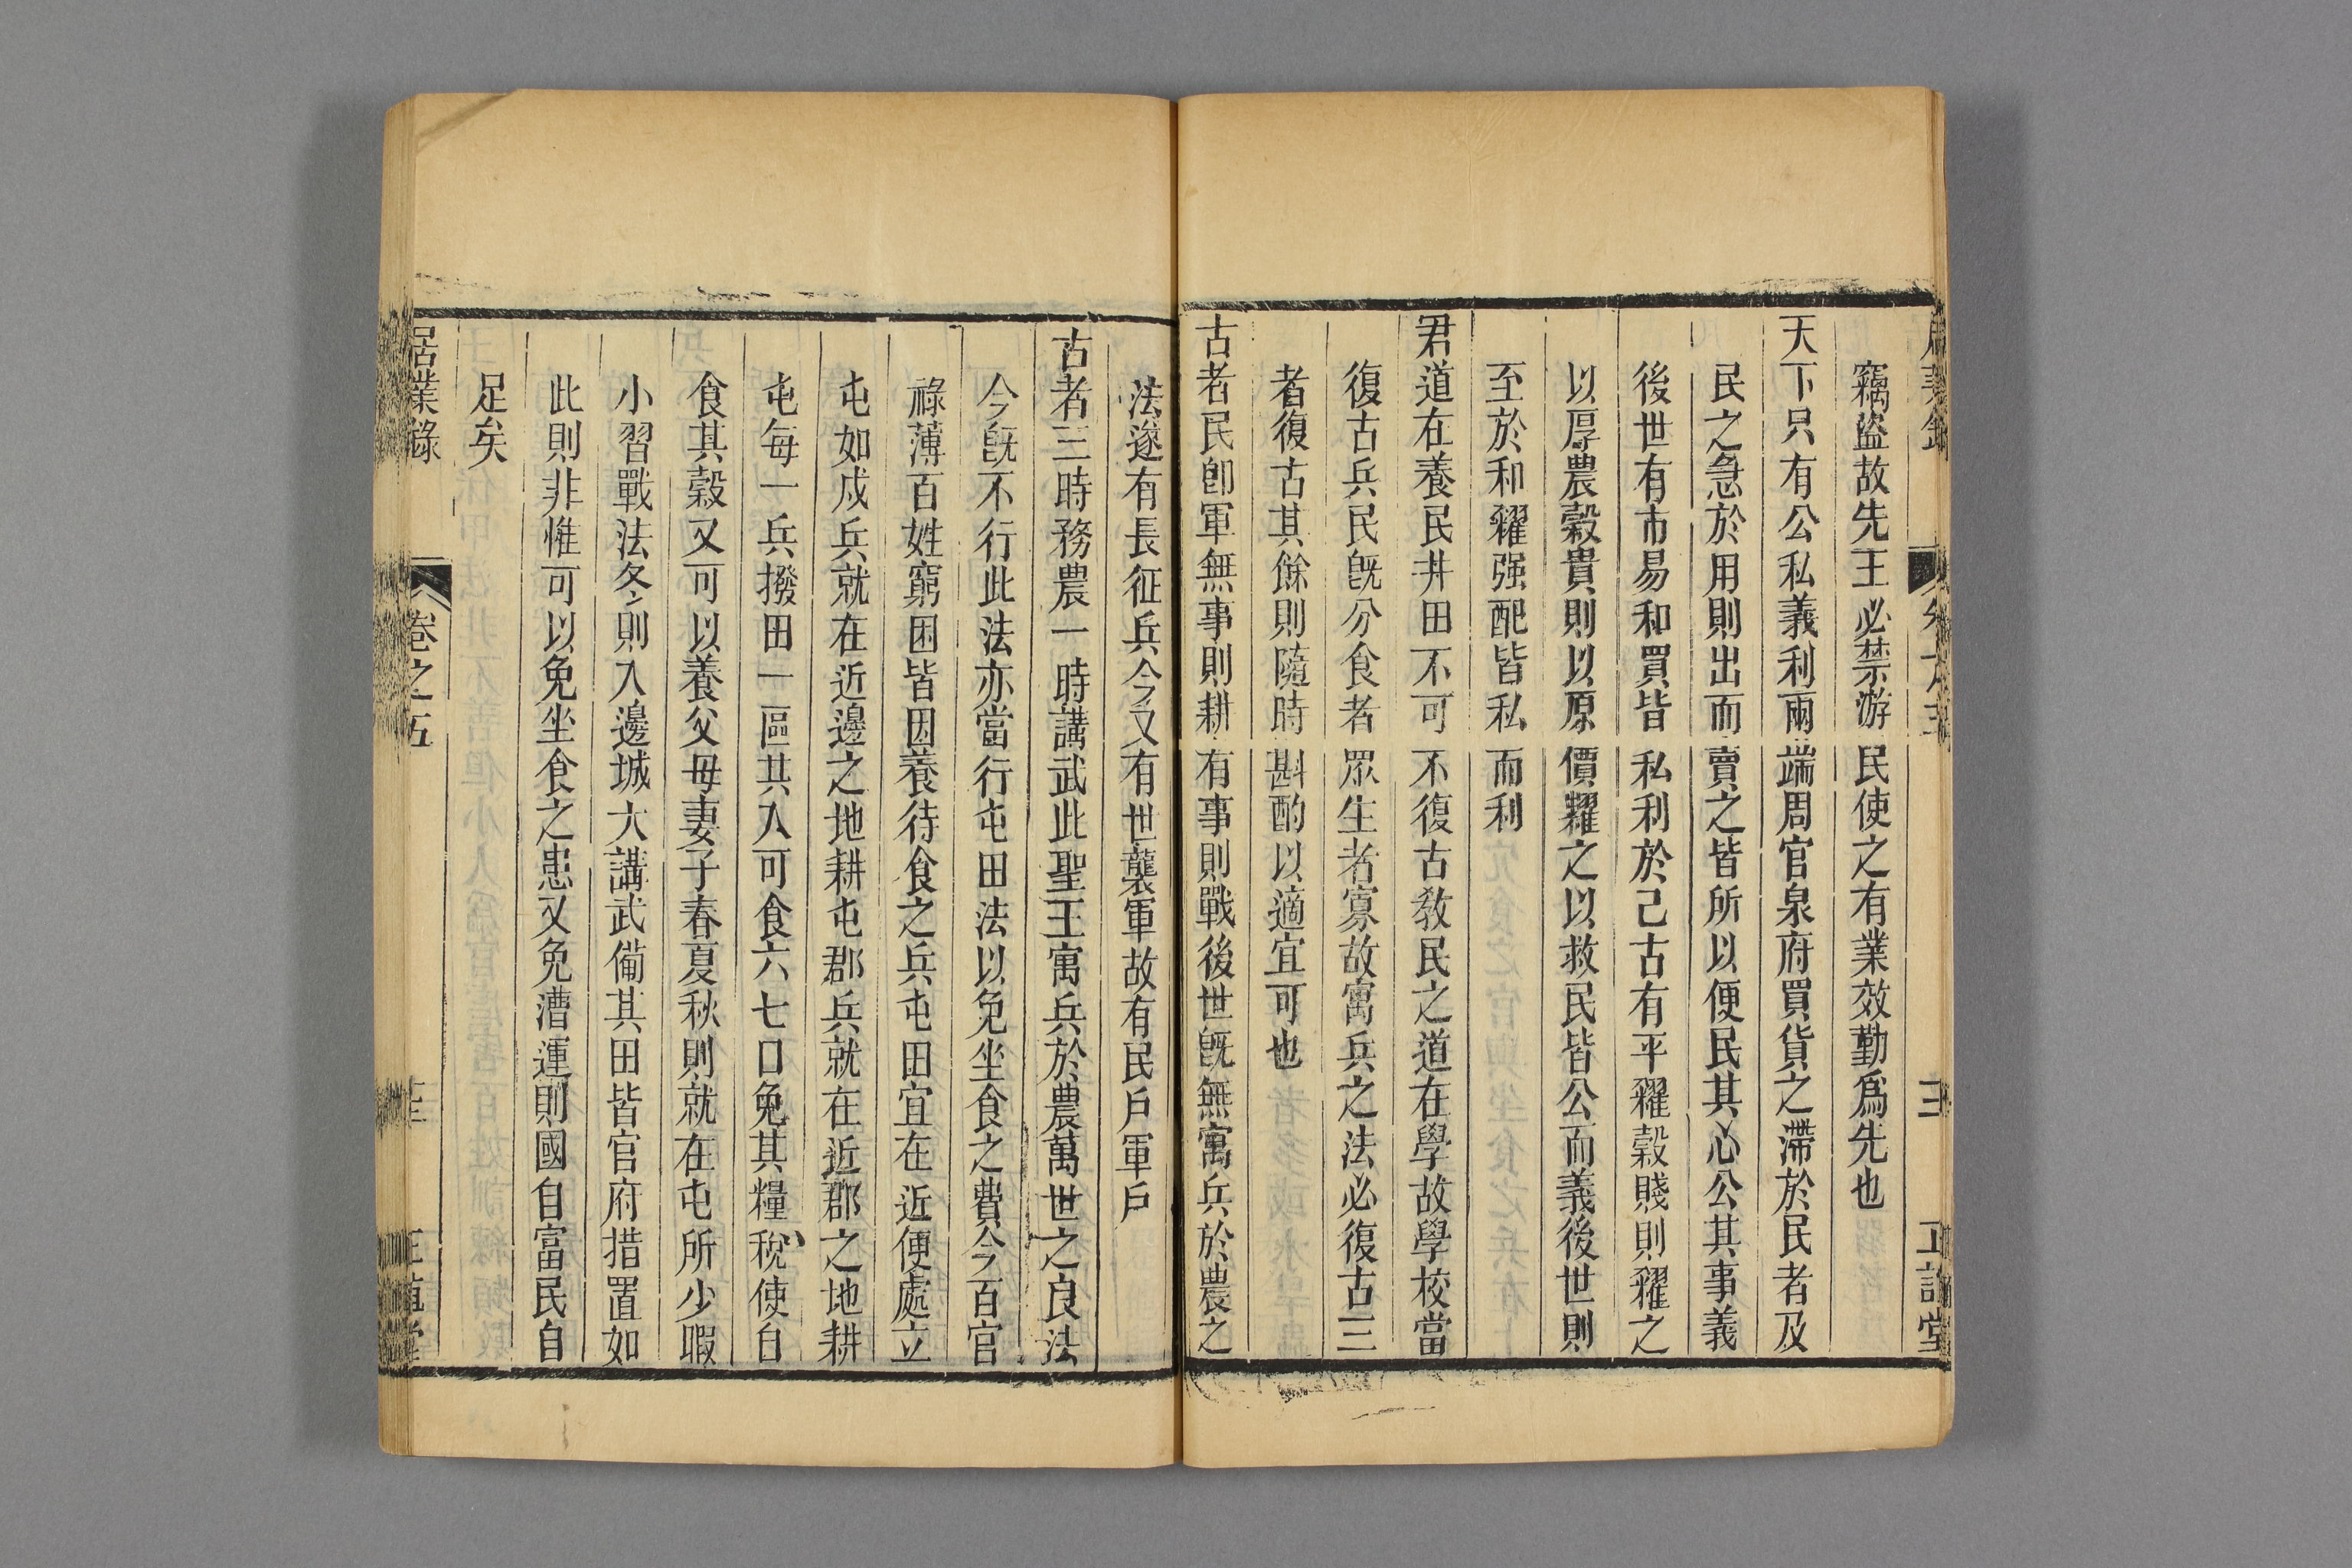 竊盜故先王必禁游民使之有業效勤爲先也
天下只有公私義利兩端周官泉府買貨之滯於民者及
民之急於用則出而賣之皆所以便民其心公其事義
後世有市易和買皆私利於己古有平糴穀賤則糴之
以厚農穀貴則以原價糶之以救民皆公而義後世則
至於和糴强配皆私而利
君道在養民井田不可不復古敎民之道在學故學校當
復古兵民旣分食者眾生者寡故寓兵之法必復古三
者復古其餘則隨時斟酌以適宜可也
古者民卽軍無事則耕有事則戰後世旣無寓兵於農之
法遂有長征兵今又有世襲軍故有民戶軍戶
古者三時務農一時講武此聖王寓兵於農萬世之良法
今旣不行此法亦當行屯田法以免坐食之費今百官
祿薄百姓窮困皆因養待食之兵屯田宜在近便處立
屯如戍兵就在近邊之地耕屯郡兵就在近郡之地耕
屯每一兵撥田一區其入可食六七口免其糧稅使自
食其穀又可以養父母妻子春夏秋則就在屯所少暇
小習戰法冬則入邊城大講武備其田皆官府措置如
此則非惟可以免坐食之患又免漕運則國自富民自
足矣
居業錄
卷之五